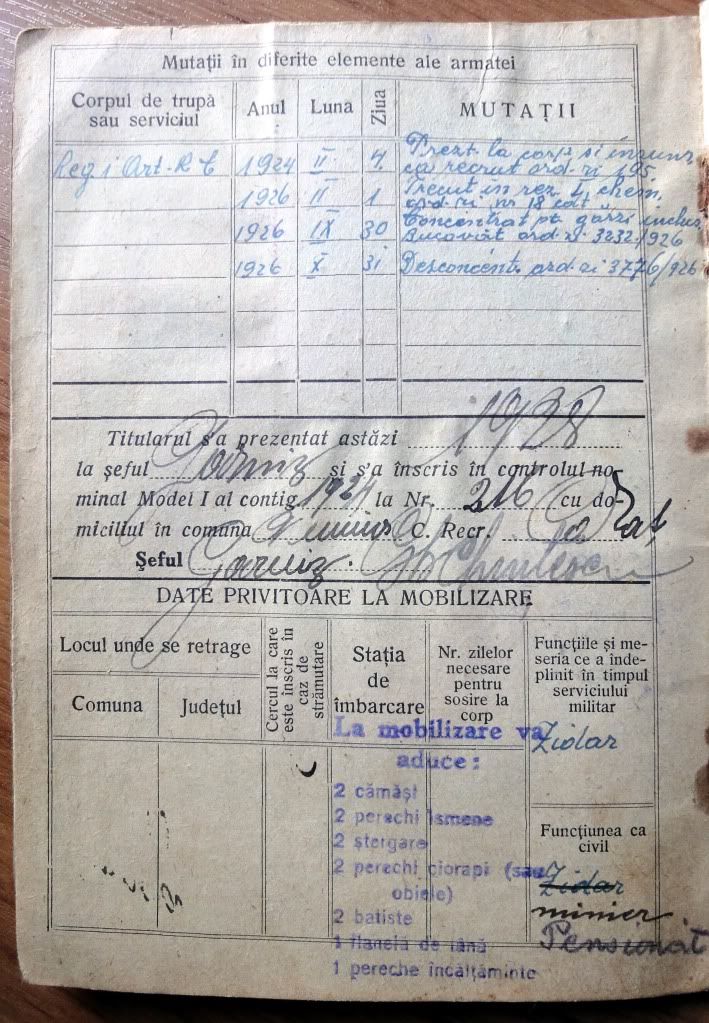 Mutații în diferite elemente ale armatei
Corpul de trupă
sau serviciul
Anul
Luna
Ziua
MUTAȚII
Reg 1 Art. 1924 II 4 Prezt. la corp și
ca recrut ord. zi 195
1926 II 1 Trecut în rez.
ord. zi nr 18
1926 IX 30 Concentrat pt. gărzi
ord zi 3232/926
1926 X 31 Desconcent. ord. zi 3776/926
Titularul s'a prezentat astăzi 1928
la șeful Garniz și s'a înscris în controlul no-
minal Model I al contig. 1924 la Nr. 216 cu do-
miciliul în comuna C. Recr.
Șeful Garniz.
DATE PRIVITOARE LA MOBILIZARE
Locul unde se retrage
Comuna
Județul
Cercul la care
este înscris în
caz de
strămutare
Stația
de
îmbarcare
Nr. zilelor
necesare
pentru
sosire la
corp
Funcțiile și me-
seria ce a înde-
plinit în timpul
serviciului
militar
Zidar
La mobilizare va
aduce:
2 cămăși
2 perechi ismene
2 ștergare
2 perechi ciorapi (sau
obiele)
2 batiste
1 flanelă de lână
1 pereche încălțăminte
Funcțiunea ca
civil
Zidar
minier
Pensionat